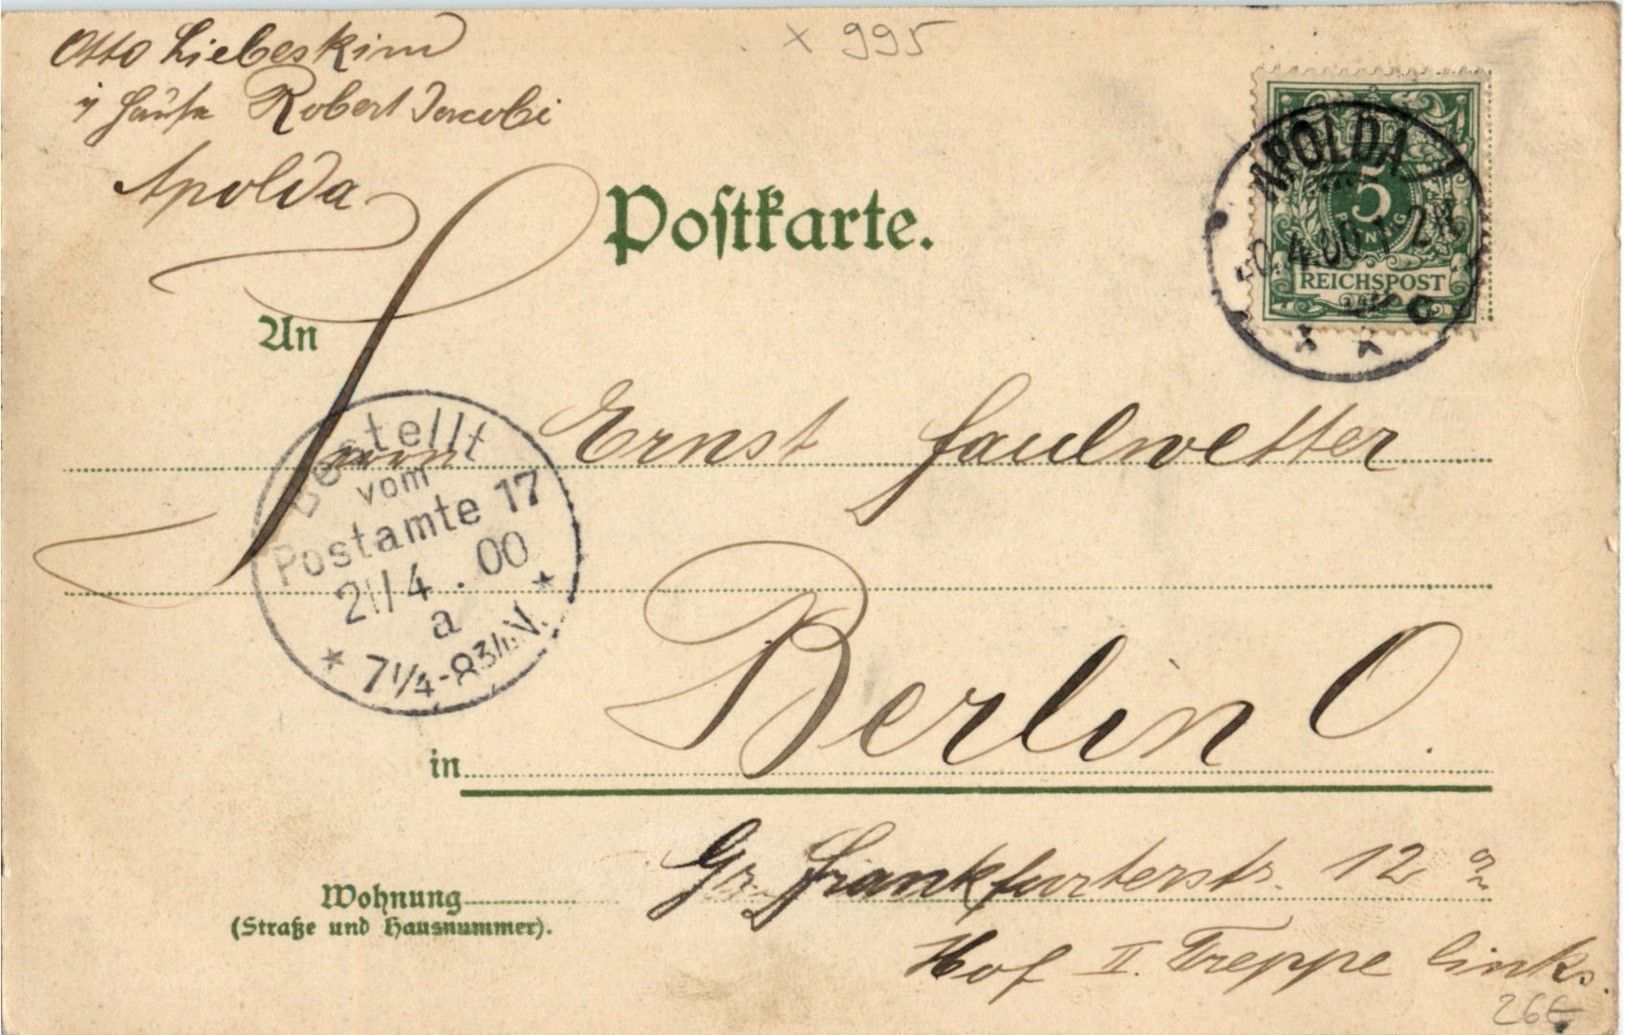 Otto Liebeskind
i/ Hause Robert Jacobi
Apolda
× 995
Postkarte.
APOLDA 1
5
PFENNIG
REICHSPOST
.4.00 1 2 N
* * c
An
Herrn Ernst Faulwetter
Bestellt
vom
Postamte 17
21/4.00
a
* 7 1/4-8 3/4 V. *
in Berlin O.
Wohnung
(Straße und Hausnummer).
Gr. Frankfurterstr. 12
Hof II. Treppe links.
26€